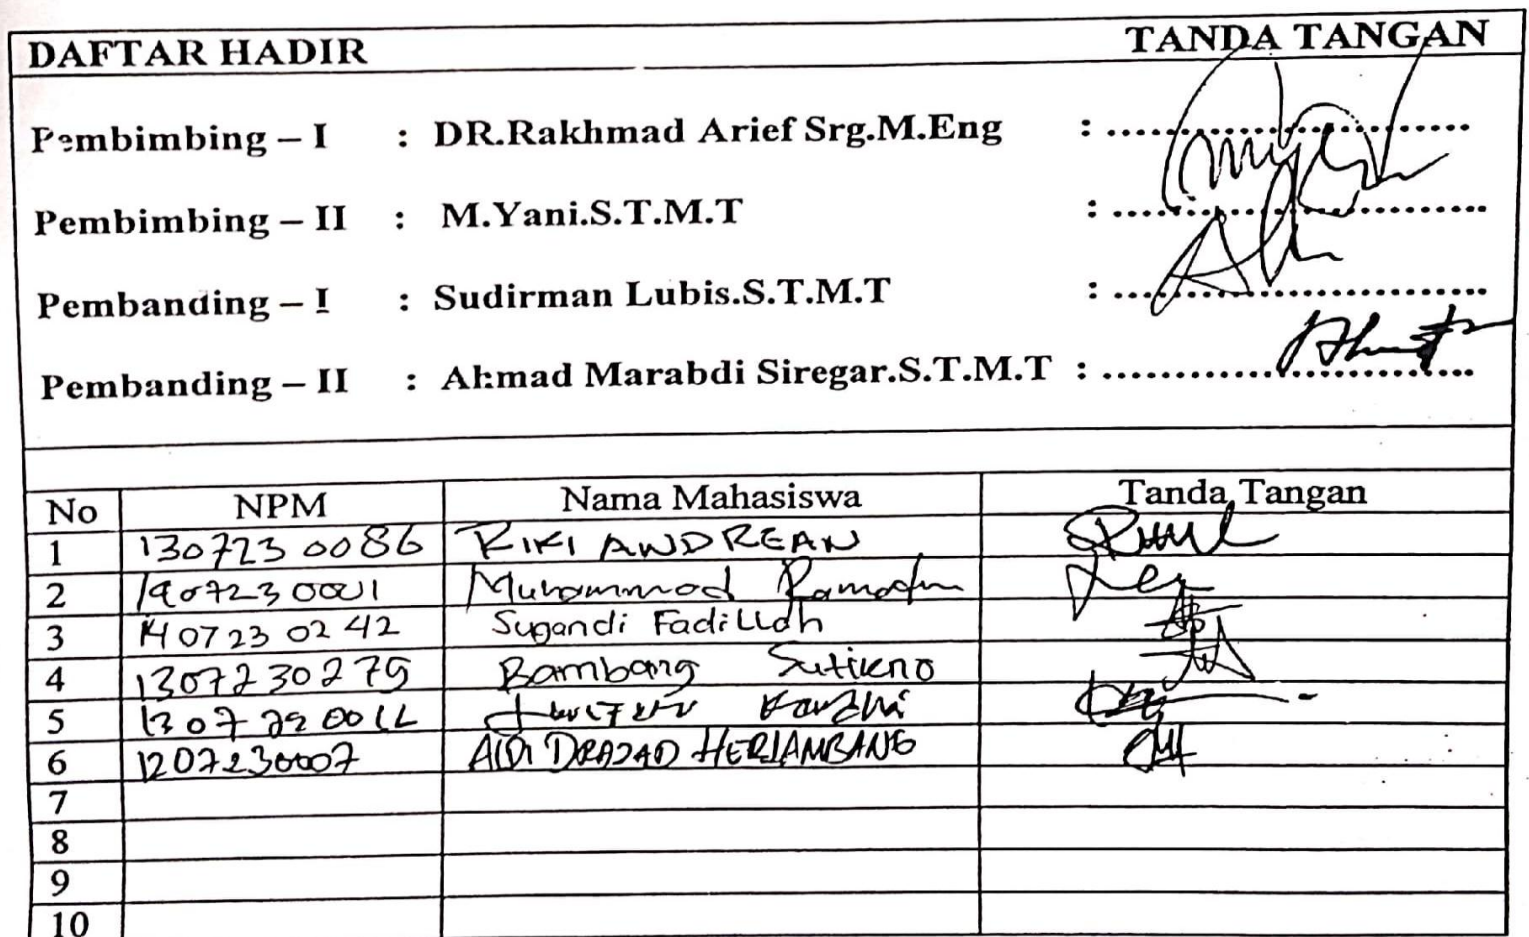 DAFTAR HADIR TANDA TANGAN
Pembimbing – I : DR.Rakhmad Arief Srg.M.Eng : ..............................
Pembimbing – II : M.Yani.S.T.M.T : ..............................
Pembanding – I : Sudirman Lubis.S.T.M.T : ..............................
Pembanding – II : Ahmad Marabdi Siregar.S.T.M.T : ..............................
No NPM Nama Mahasiswa Tanda Tangan
1 1307230086 RIKI ANDREAN
2 Muhammad
3 1407230242 Sugandi Fadillah
4 1307230279 Bambang Sutikno
5
6 1207230007 ALDI DRAJAD HERJAMBANG
7
8
9
10